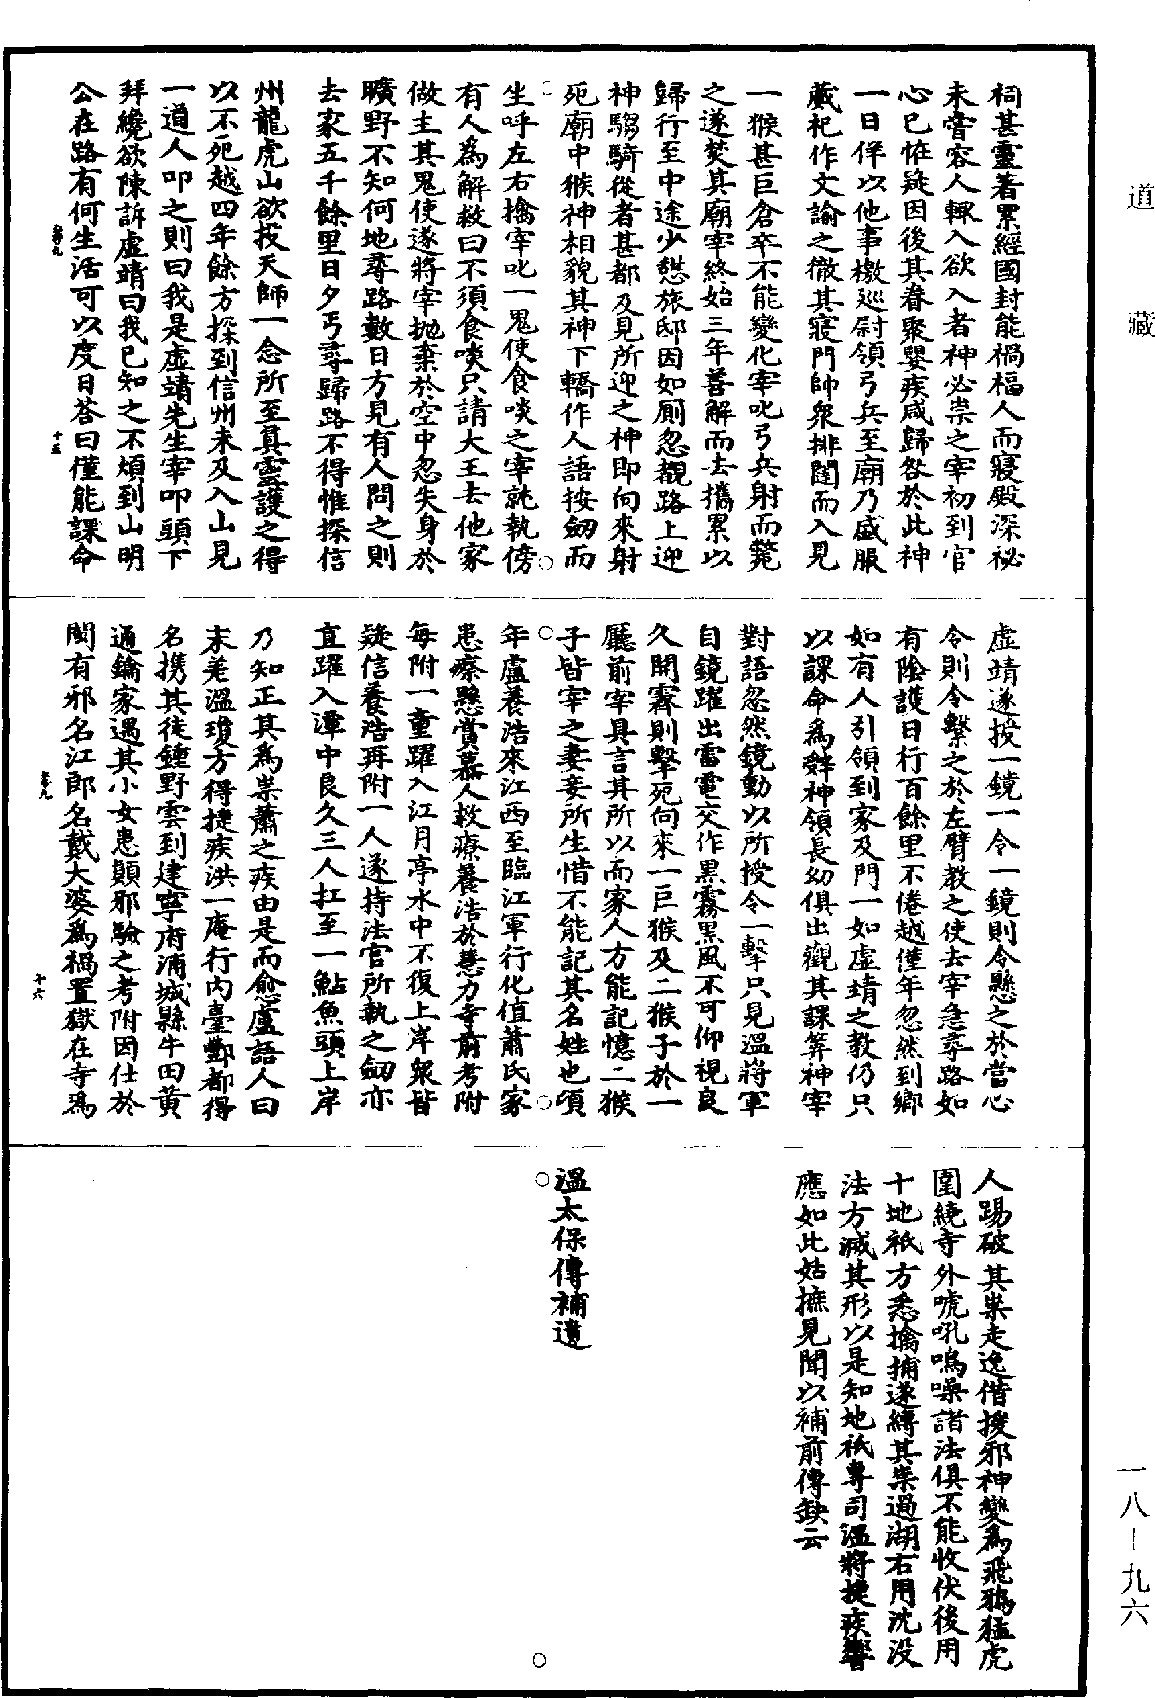 道藏
祠甚靈著累經國封能禍福人而寢殿深祕
未嘗容人輒入欲入者神必祟之宰初到官
心已怪疑因後其眷聚嬰疾咸歸咎於此神
一日佯以他事檄巡尉領弓兵至廟乃盛服
蕆祀作文諭之徹其寢門帥衆排闥而入見
一猴甚巨倉卒不能變化宰叱弓兵射而斃
之遂焚其廟宰終始三年善解而去攜累以
歸行至中途少憩旅邸因如厠忽覩路上迎
神騶騎從者甚都及見所迎之神即向來射
死廟中猴神相貌其神下轎作人語按劒而
生呼左右擒宰叱一鬼使食啖之宰就執傍
有人為解救曰不須食啖只請大王去他家
做主其鬼使遂將宰拋棄於空中忽失身於
曠野不知何地尋路數日方見有人問之則
去家五千餘里日夕丐尋歸路不得惟探信
州龍虎山欲投天師一念所至真靈護之得
以不死越四年餘方探到信州未及入山見
一道人叩之則曰我是虛靖先生宰叩頭下
拜纔欲陳訴虛靖曰我已知之不煩到山明
公在路有何生活可以度日荅曰僅能課命
卷九
十五
虛靖遂授一鏡一令一鏡則令懸之於當心
令則令繫之於左臂教之使去宰急尋路如
有陰護日行百餘里不倦越僅年忽然到鄉
如有人引領到家及門一如虛靖之教仍只
以課命為辤神領長幼俱出觀其課筭神宰
對語忽然鏡動以所授令一擊只見溫將軍
自鏡躍出雷電交作黑霧黑風不可仰視良
久開霽則擊死向來一巨猴及二猴子於一
廳前宰具言其所以而家人方能記憶二猴
子皆宰之妻妾所生惜不能記其名姓也頃
年盧養浩來江西至臨江軍行化值蕭氏家
患瘵懸賞慕人救療養浩於慧力寺前考附
每附一童躍入江月亭水中不復上岸衆皆
疑信養浩再附一人遂持法官所執之劒亦
直躍入潭中良久三人扛至一鮎魚頭上岸
乃知正其為祟蕭之疾由是而愈盧語人曰
末差溫瓊方得捷疾洪一庵行內臺酆都得
名攜其徒鍾野雲到建寧府浦城縣牛田黃
通鑰家遇其小女患顛邪驗之考附因仕於
閩有邪名江郎名戴大婆為禍置獄在寺為
卷九
十六
人踢破其祟走逸偕援邪神變為飛鴉猛虎
圍繞寺外唬吼鳴噪諸法俱不能收伏後用
十地祇方悉擒捕遂縛其祟過湖右用沈没
法方滅其形以是知地祇專司溫將捷疾響
應如此姑摭見聞以補前傳缺云
溫太保傳補遺
一八—九六